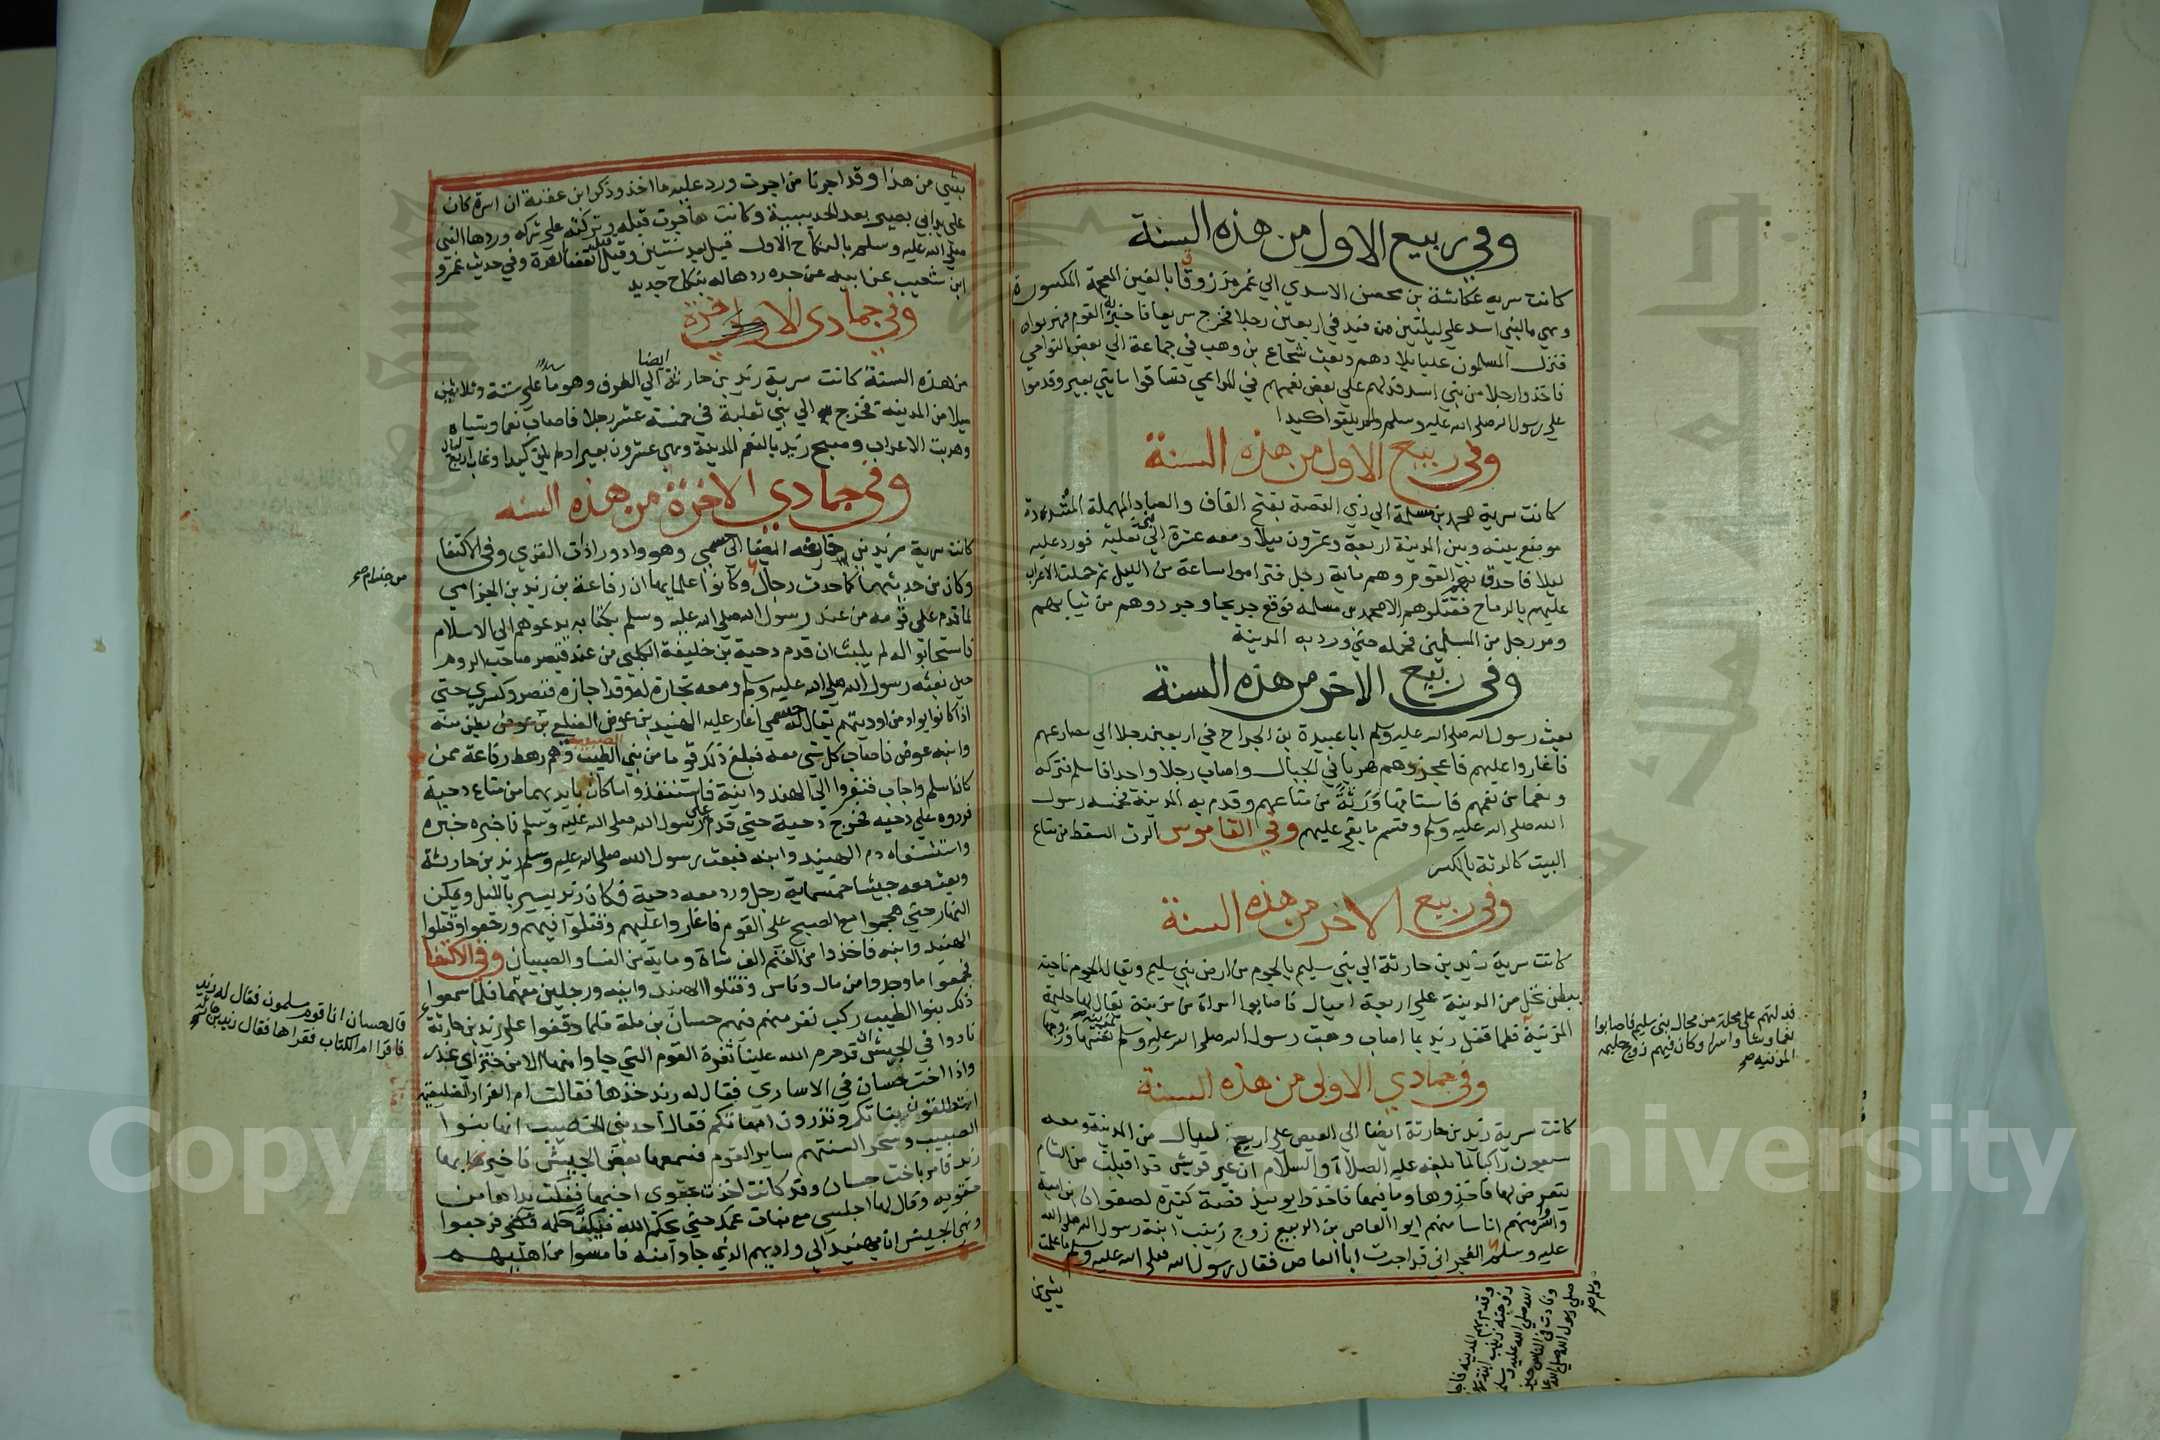 وفي ربيع الاول من هذه السنة
كانت سرية عكاشة بن محصن الاسدي الي غمر مرزوق بالغين المعجمة المكسورة
وهي ماء لبني اسد علي ليلتين من فيد في اربعين رجلا فخرج سريعا فاخبر به القوم فهربوا
فنزل المسلمون عليا بلادهم وبعث شجاع بن وهب في جماعة الي بعض النواحي
فاخذوا رجلا من بني اسد فدلهم علي بعض نعمهم في المراعي فساقوا مايتي بعير وقدموا
علي رسول الله صلي الله عليه وسلم ولم يلقوا كيدا
وفي ربيع الاول من هذه السنة
كانت سرية محمد بن مسلمة الي ذي القصة بفتح القاف والصاد المهملة المشددة
موضع بينه وبين المدينة اربعة وعشرون ميلا ومعه عشرة الي بني ثعلبة فورد عليه
ليلا فاحدق بهم القوم وهم ماية رجل فتراموا ساعة من الليل ثم حملت الاعراب
عليهم بالرماح فقتلوهم الا محمد بن مسلمة فوقع جريحا وجردوهم من ثيابهم
ومر رجل من المسلمين فحمله حتي ورد به المدينة
وفي ربيع الاخر من هذه السنة
بعث رسول الله صلي الله عليه وسلم ابا عبيدة بن الجراح في اربعين رجلا الي مصارعهم
فاغاروا عليهم فاعجزوهم هربا في الجبال واصاب رجلا واحدا فاسلم فتركه
ونعما من نعمهم فاستاقها ورثة من متاعهم وقدم به المدينة فخمسه رسول
الله صلي الله عليه وسلم وقسم ما بقي عليهم وفي القاموس الرث السقط من متاع
البيت كالرثة بالكسر
وفي ربيع الاخر من هذه السنة
كانت سرية زيد بن حارثة الي بني سليم بالجموم من ارض بني سليم ويقال الجموم ناحية
ببطن نخل من المدينة علي اربعة اميال فاصابوا امراة من مزينة يقال لها حليمة
المزنية فلما قفل زيد بما اصاب وهب رسول الله صلي الله عليه وسلم للمزنية نفسها وزوجها
فدلتهم علي محلة من محال بني سليم فاصابوا
نعما وشاء واسرا وكان فيهم زوج حليمة
المزنية صح
وفي جمادي الاولي من هذه السنة
كانت سرية زيد بن حارثة ايضا الي العيص علي اربع ليال من المدينة ومعه
سبعون راكبا لما بلغه عليه الصلاة والسلام ان عير قريش قد اقبلت من الشام
يتعرض لها فاخذوها وما فيها فاخذوا يوميذ فضة كثيرة لصفوان بن امية
واسر منهم اناسا منهم ابو العاص بن الربيع زوج زينب ابنة رسول الله صلي الله
عليه وسلم الفجر اني قد اجرت ابا العاص فقال رسول الله صلي الله عليه وسلم ما علمت
بشي من
وقدم بهم المدينة فاجا
زوجته زينب ابنة
الله صلي الله عليه وسلم
ونادت في الناس حين
صلي رسول الله صلي الله
وسلم صح
بشي من هذا وقد اجرنا من اجرت ورد عليه ما اخذ وذكر ابن عقبة ان اسره كان
علي يد ابي بصير بعد الحديبية وكانت هاجرت قبله وتركته علي شركه وردها النبي
صلي الله عليه وسلم بالنكاح الاول قيل بعد سنتين وقيل قبله انقضا العدة وفي حديث عمرو
ابن شعيب عن ابيه عن جده ردها له بنكاح جديد
وفي جمادي الاخرة
من هذه السنة كانت سرية زيد بن حارثة ايضا الي الطرف وهو ما علي ستة وثلاثين
ميلا من المدينة فخرج الي بني ثعلبة في خمسة عشر رجلا فاصاب نعما وشياه
وهربت الاعراب وصبح زيد بالنعم المدينة وهي عشرون بعيرا ولم يلق كيدا وغاب اربع ليال
وفي جمادي الاخرة من هذه السنه
كانت سرية زيد بن حارثه ايضا الي حسمي وهو واد ورا ذات القري وفي الاكتفا
وكان من حديثهما كما حدث رجال من جذام صح وكانوا علما بها ان رفاعة بن زيد بن الجزامي
لما قدم علي قومه من عند رسول الله صلي الله عليه وسلم بكتابه يدعوهم الي الاسلام
فاستجابوا له لم يلبث ان قدم دحية بن خليفة الكلبي من عند قيصر صاحب الروم
حين بعثه رسول الله صلي الله عليه وسلم ومعه تجارة له وقد اجازه قيصر وكسري حتي
اذا كانوا بواد من اوديتهم يقال له حسمي اغار عليه الهنيد بن عوض الضلعي بطن منه
وابنه عوض فاصاب كل شي معه فبلغ ذلك قوما من بني الضبيب وهم رهط رفاعة ممن
كان اسلم واجاب فنفروا الي الهنيد وابنه فاستنقذوا ما كان بايديهما من متاع دحية
فردوه علي دحيه فخرج دحية حتي قدم علي رسول الله صلي الله عليه وسلم فاخبره خبره
واستسقاه دم الهنيد وابنه فبعث رسول الله صلي الله عليه وسلم زيد بن حارثة
وبعث معه جيشا خمسماية رجل ورد معه دحية فكان زيد يسير بالليل ويكمن
النهار حتي هجموا مع الصبح علي القوم فاغاروا عليهم وقتلوا فيهم ورجعوا وقتلوا
الهنيد وابنه فاخذوا من الغنم الف شاة وماية من النسا والصبيان وفي الاكتفا
فجمعوا ما وجدوا من مال وناس وقتلوا الهنيد وابنه ورجلين معهما فلما سمعوا
ذلك بنوا الطبيب ركب نفر منهم فيهم حسان بن ملة فلما وقفوا علي زيد بن حارثة
قال حسان انا قوم مسلمون فقال له زيد
فاقرا ام الكتاب فقراها فقال زيد بن حارثة
نادوا في الجيش ان قد حرم الله علينا ثغرة القوم التي جاوا منها الا من ختر اي غدر
واذا اخت حسان في الاساري فقال له زيد خذها فقالت ام الفزار الضليعية
اتنطلقون ببناتكم وتذرون امهاتكم فقال احد بني الخصيب انها بنوا
الضبيب وسحر السنتهم ساير القوم فسمعها بعض الجيش فاخبر بها
زيد فامر باخت حسان وقد كانت اخذت بحقوي اخيها ففكت يداها من
حقويه وقال لها اجلسي مع بنات عمك حتي يحكم الله فيكن حكمه فرجعوا
ونهي الجيش ان يهبطوا الي واديهم الذي جاوا منه فامسوا من اهليهم